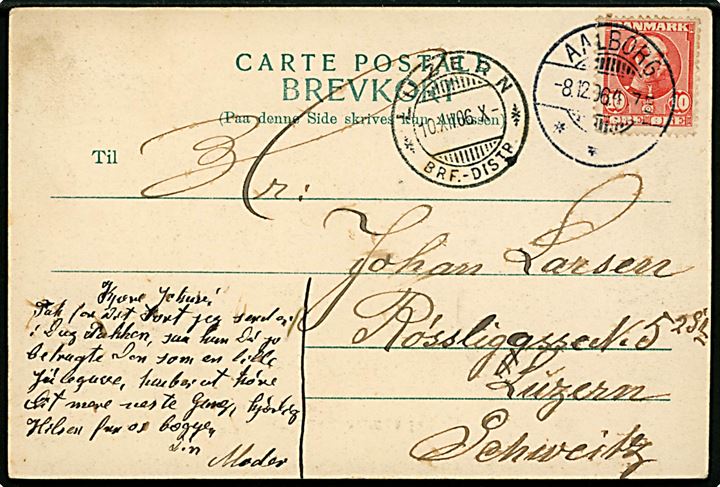 CARTE POSTALE
BREVKORT
(Paa denne Side skrives kun Adressen)
DANMARK
10 10
AALBORG
-8.12.06.
LUZERN
10.XII.06.X-
BRF.-DISTR.
Til Hr:
Johan Larsen
Róssliggasse N. 5 2 St
Luzern
Schweitz
Kjære Johan!
Tak for Dit Kort jeg sender
i Dag Pakken, saa kan Du jo
betragte Den som en lille
Julegave, haaber at høre
lidt mere næste Gang, hjertelig
Hilsen fra os begge,
Din
Moder